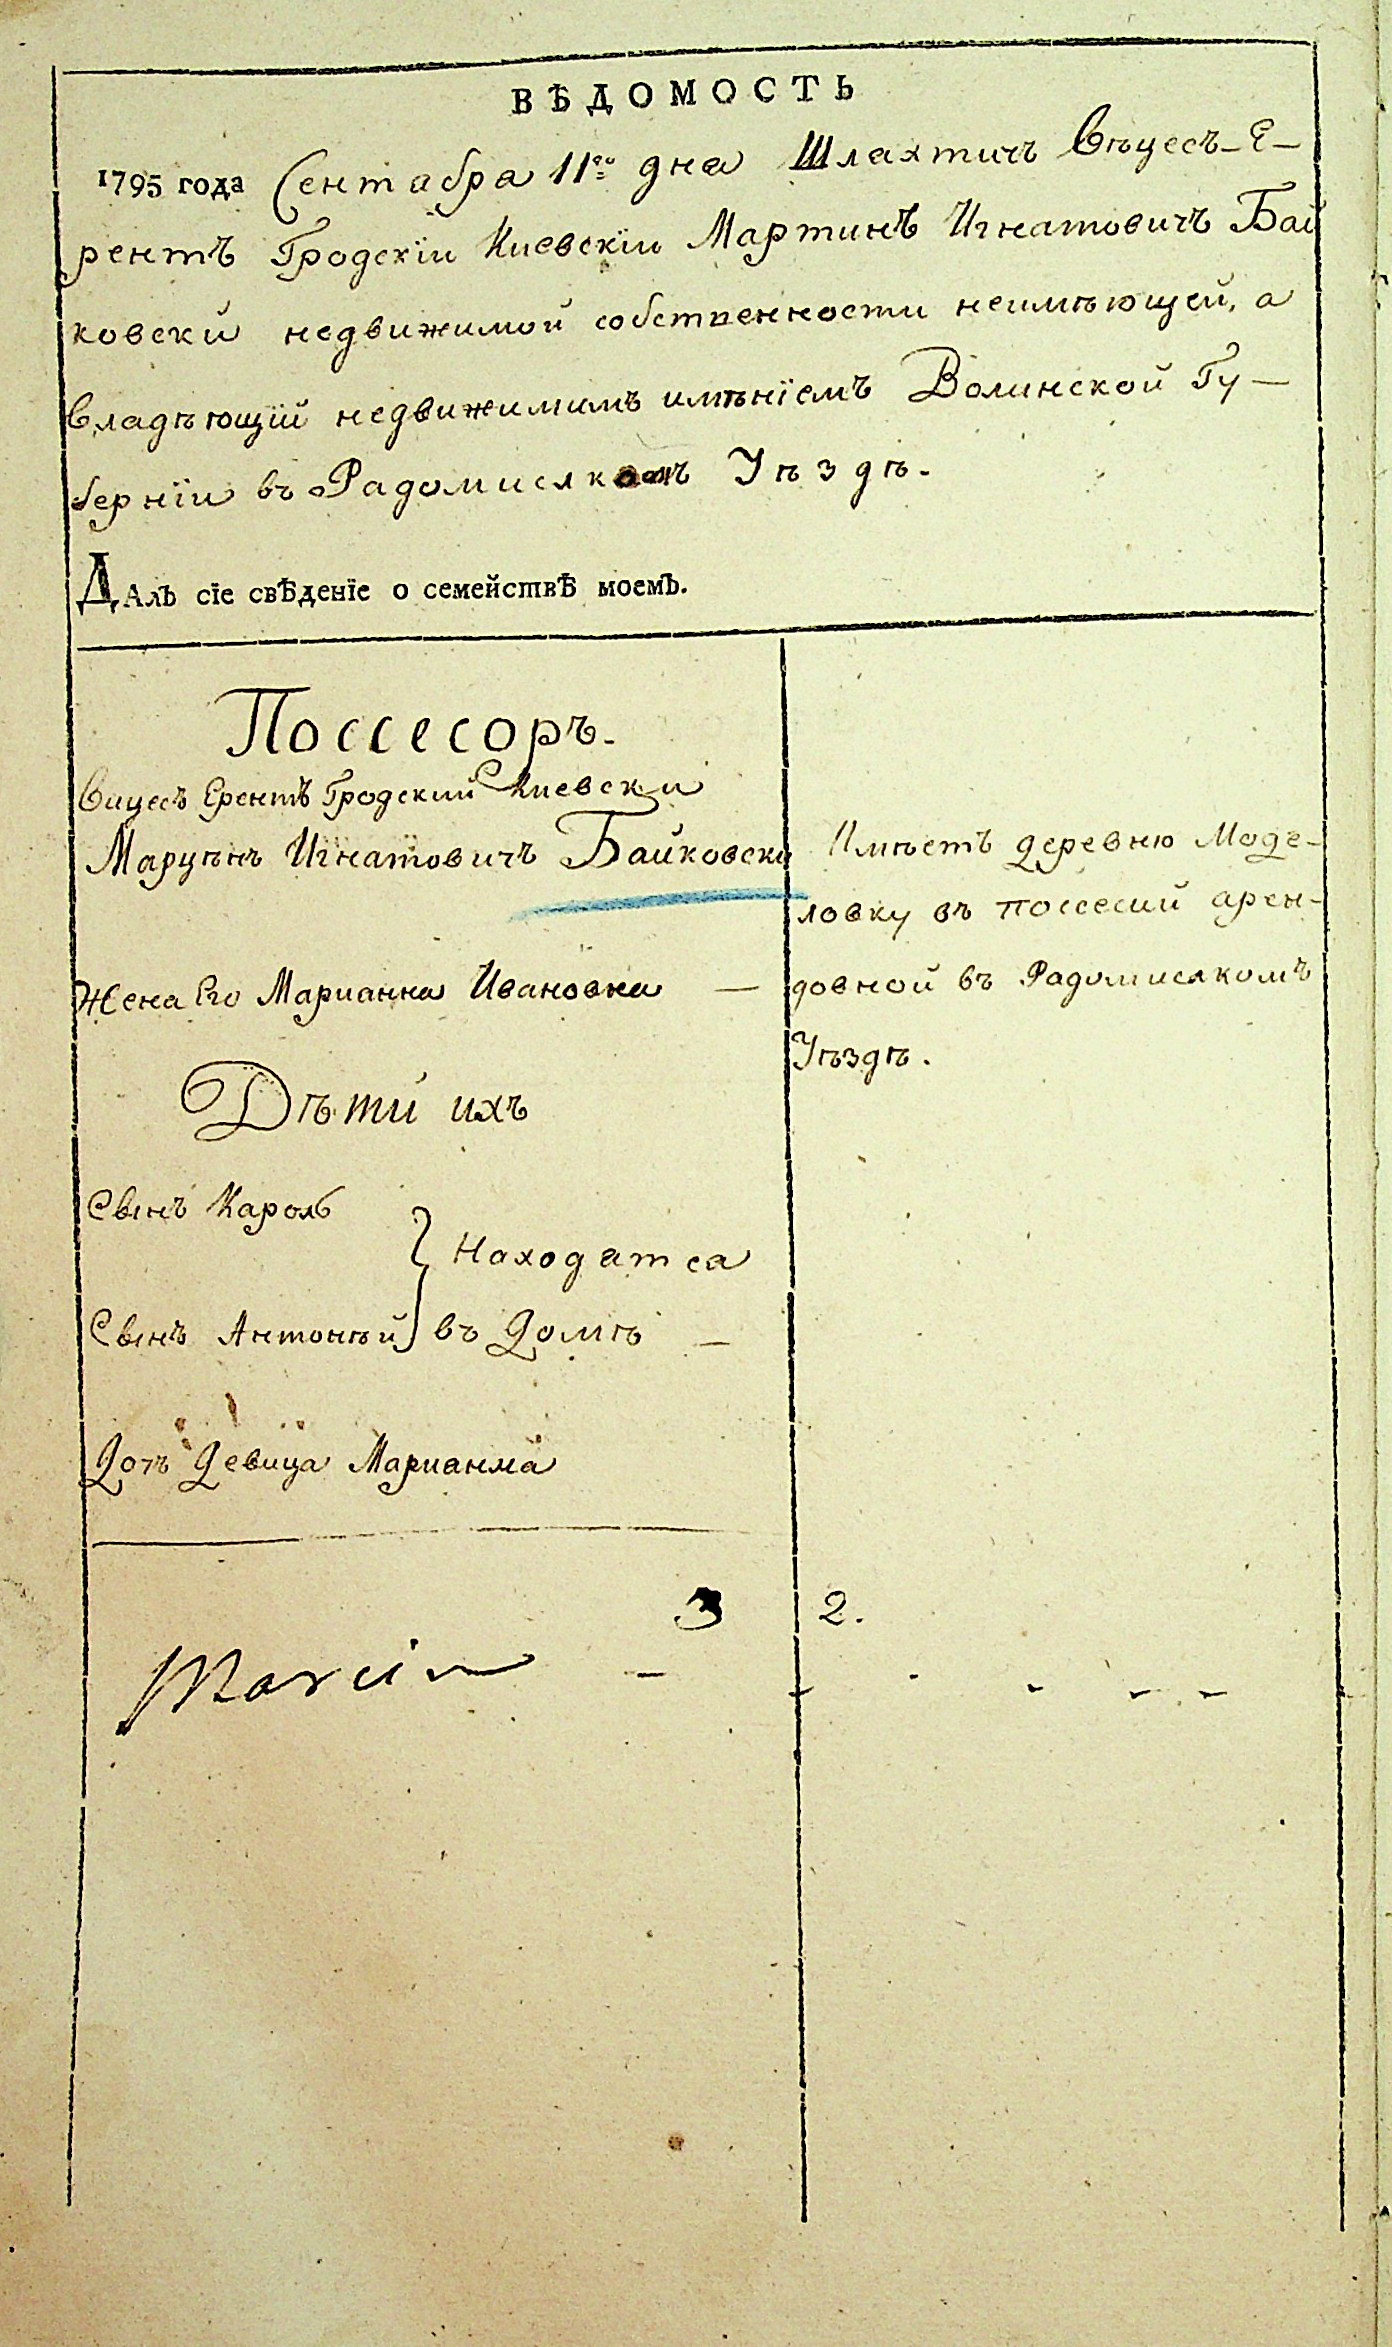 ВѢДОМОСТЬ
1795 года Сентабра 11го дна Шлахтичъ Вѣцесъ-Е-
рентъ Гродскїи Киевскїи Мартинъ Игнатовичъ Бай
ковски недвижимой собственности неимѣющей, а
владѣющїй недвижимимъ имѣнїемъ Волинской Гу-
бернїи въ Радомислкомъ Уѣздѣ.
ДАлъ сїе свѢденїе о семействѢ моемъ.
Поссесоръ.
Вицесъ Ерентъ Гродский Киевски
Марцѣнъ Игнатовичъ Байковски
Имѣетъ деревню Моде-
ловку въ поссесий арен-
довной въ Радомислкомъ
Уѣздѣ.
Жена Его Марианна Ивановна —
Дѣти ихъ
Свинъ Кароль
Находатса
Свинъ Антонѣй въ Домѣ —
Дотъ Девица Марианна
3 2.
Marcin